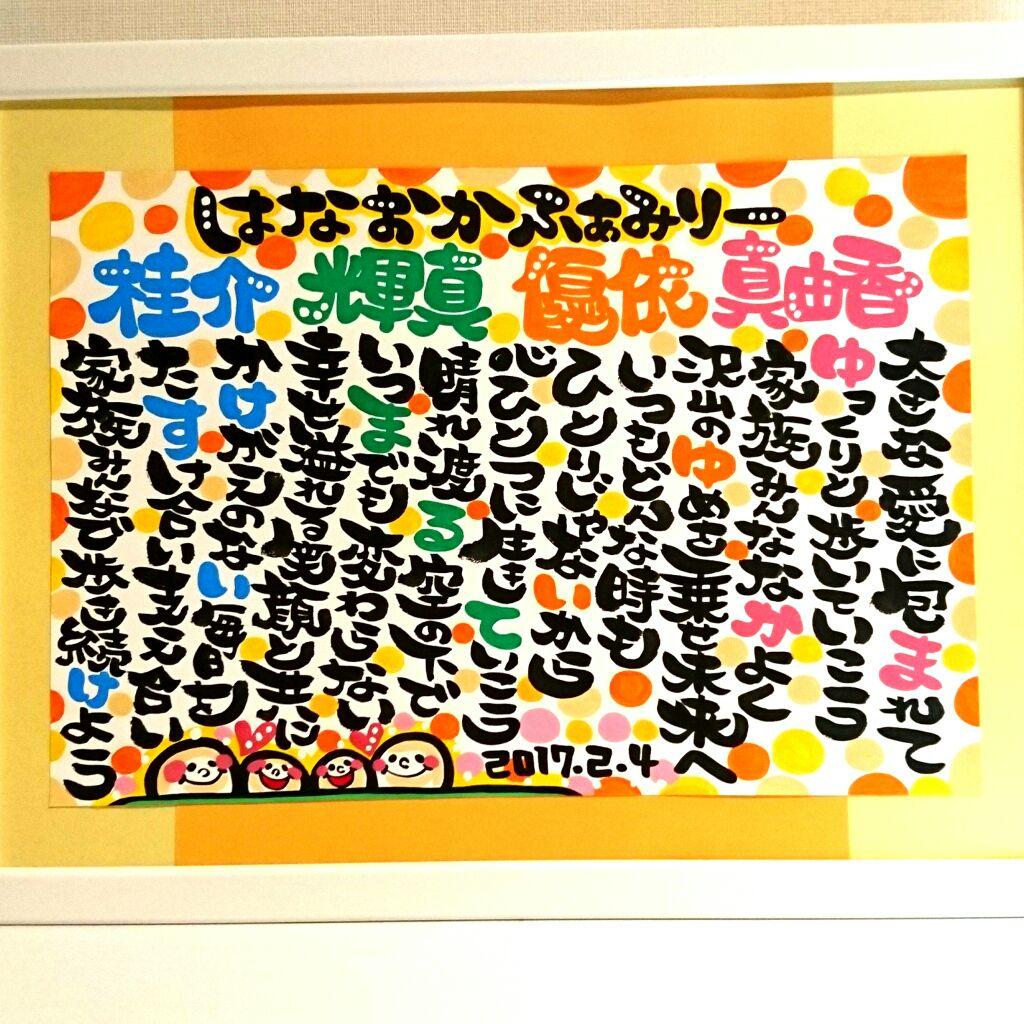 はなおかふぁみりー
真由香
優依
輝真
桂介
大きな愛に包まれて
ゆっくりと歩いていこう
家族みんななかよく
沢山のゆめを乗せ未来へ
いつもどんな時も
ひとりじゃないから
心ひとつに生きていこう
晴れ渡る空の下で
いつまでも変わらない
幸せ溢れる笑顔と共に
かけがえのない毎日を
たすけ合い支え合い
家族みんなで歩き続けよう
2017.2.4